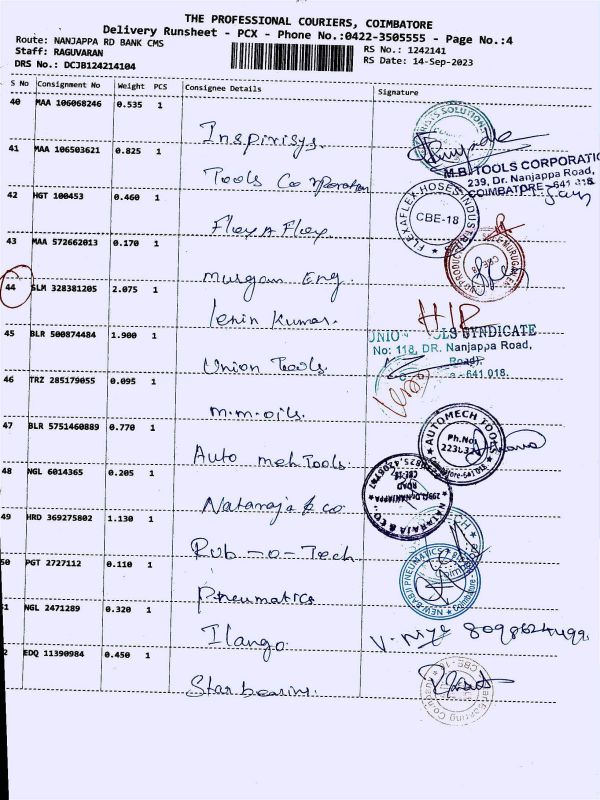 THE PROFESSIONAL COURIERS, COIMBATORE
Delivery Runsheet - PCX - Phone No.:0422-3505555 - Page No.:4
Route: NANJAPPA RD BANK CMS
Staff: RAGUVARAN
DRS No.: DCJB124214104
RS No.: 1242141
RS Date: 14-Sep-2023
S No Consignment No Weight PCS Consignee Details Signature
40 MAA 106068246 0.535 1
Inspirisys.
41 MAA 106503621 0.825 1
Tools Corporation
M.B. TOOLS CORPORATIO
239, Dr. Nanjappa Road,
COIMBATORE - 641 018.
42 HGT 100453 0.460 1
Flex A Flex
FLEXAFLEX HOSES INDUSTRIES
CBE-18
43 MAA 572662013 0.170 1
Murugan Eng.
44 SLM 328381205 2.075 1
Lenin Kumar.
45 BLR 500874484 1.900 1
Union Tools.
UNION TOOLS SYNDICATE
No: 118, DR. Nanjappa Road,
Road),
- 641 018.
46 TRZ 285179055 0.095 1
m.m.oils.
47 BLR 5751460889 0.770 1
Auto meh Tools
AUTOMECH TOOLS
Ph.No:
Coimbatore-641 018
48 NGL 6014365 0.205 1
Nataraja & co
NATARAJA & CO.
299, D.NANJAPPA
ROAD
CBE-18
49 HRD 369275802 1.130 1
Rub-o-Tech
50 PGT 2727112 0.110 1
Pneumatics
NEW BALAJI PNEUMATICS
1 NGL 2471289 0.320 1
Ilango
8098624499
2 EDQ 11390984 0.450 1
Star bearing.